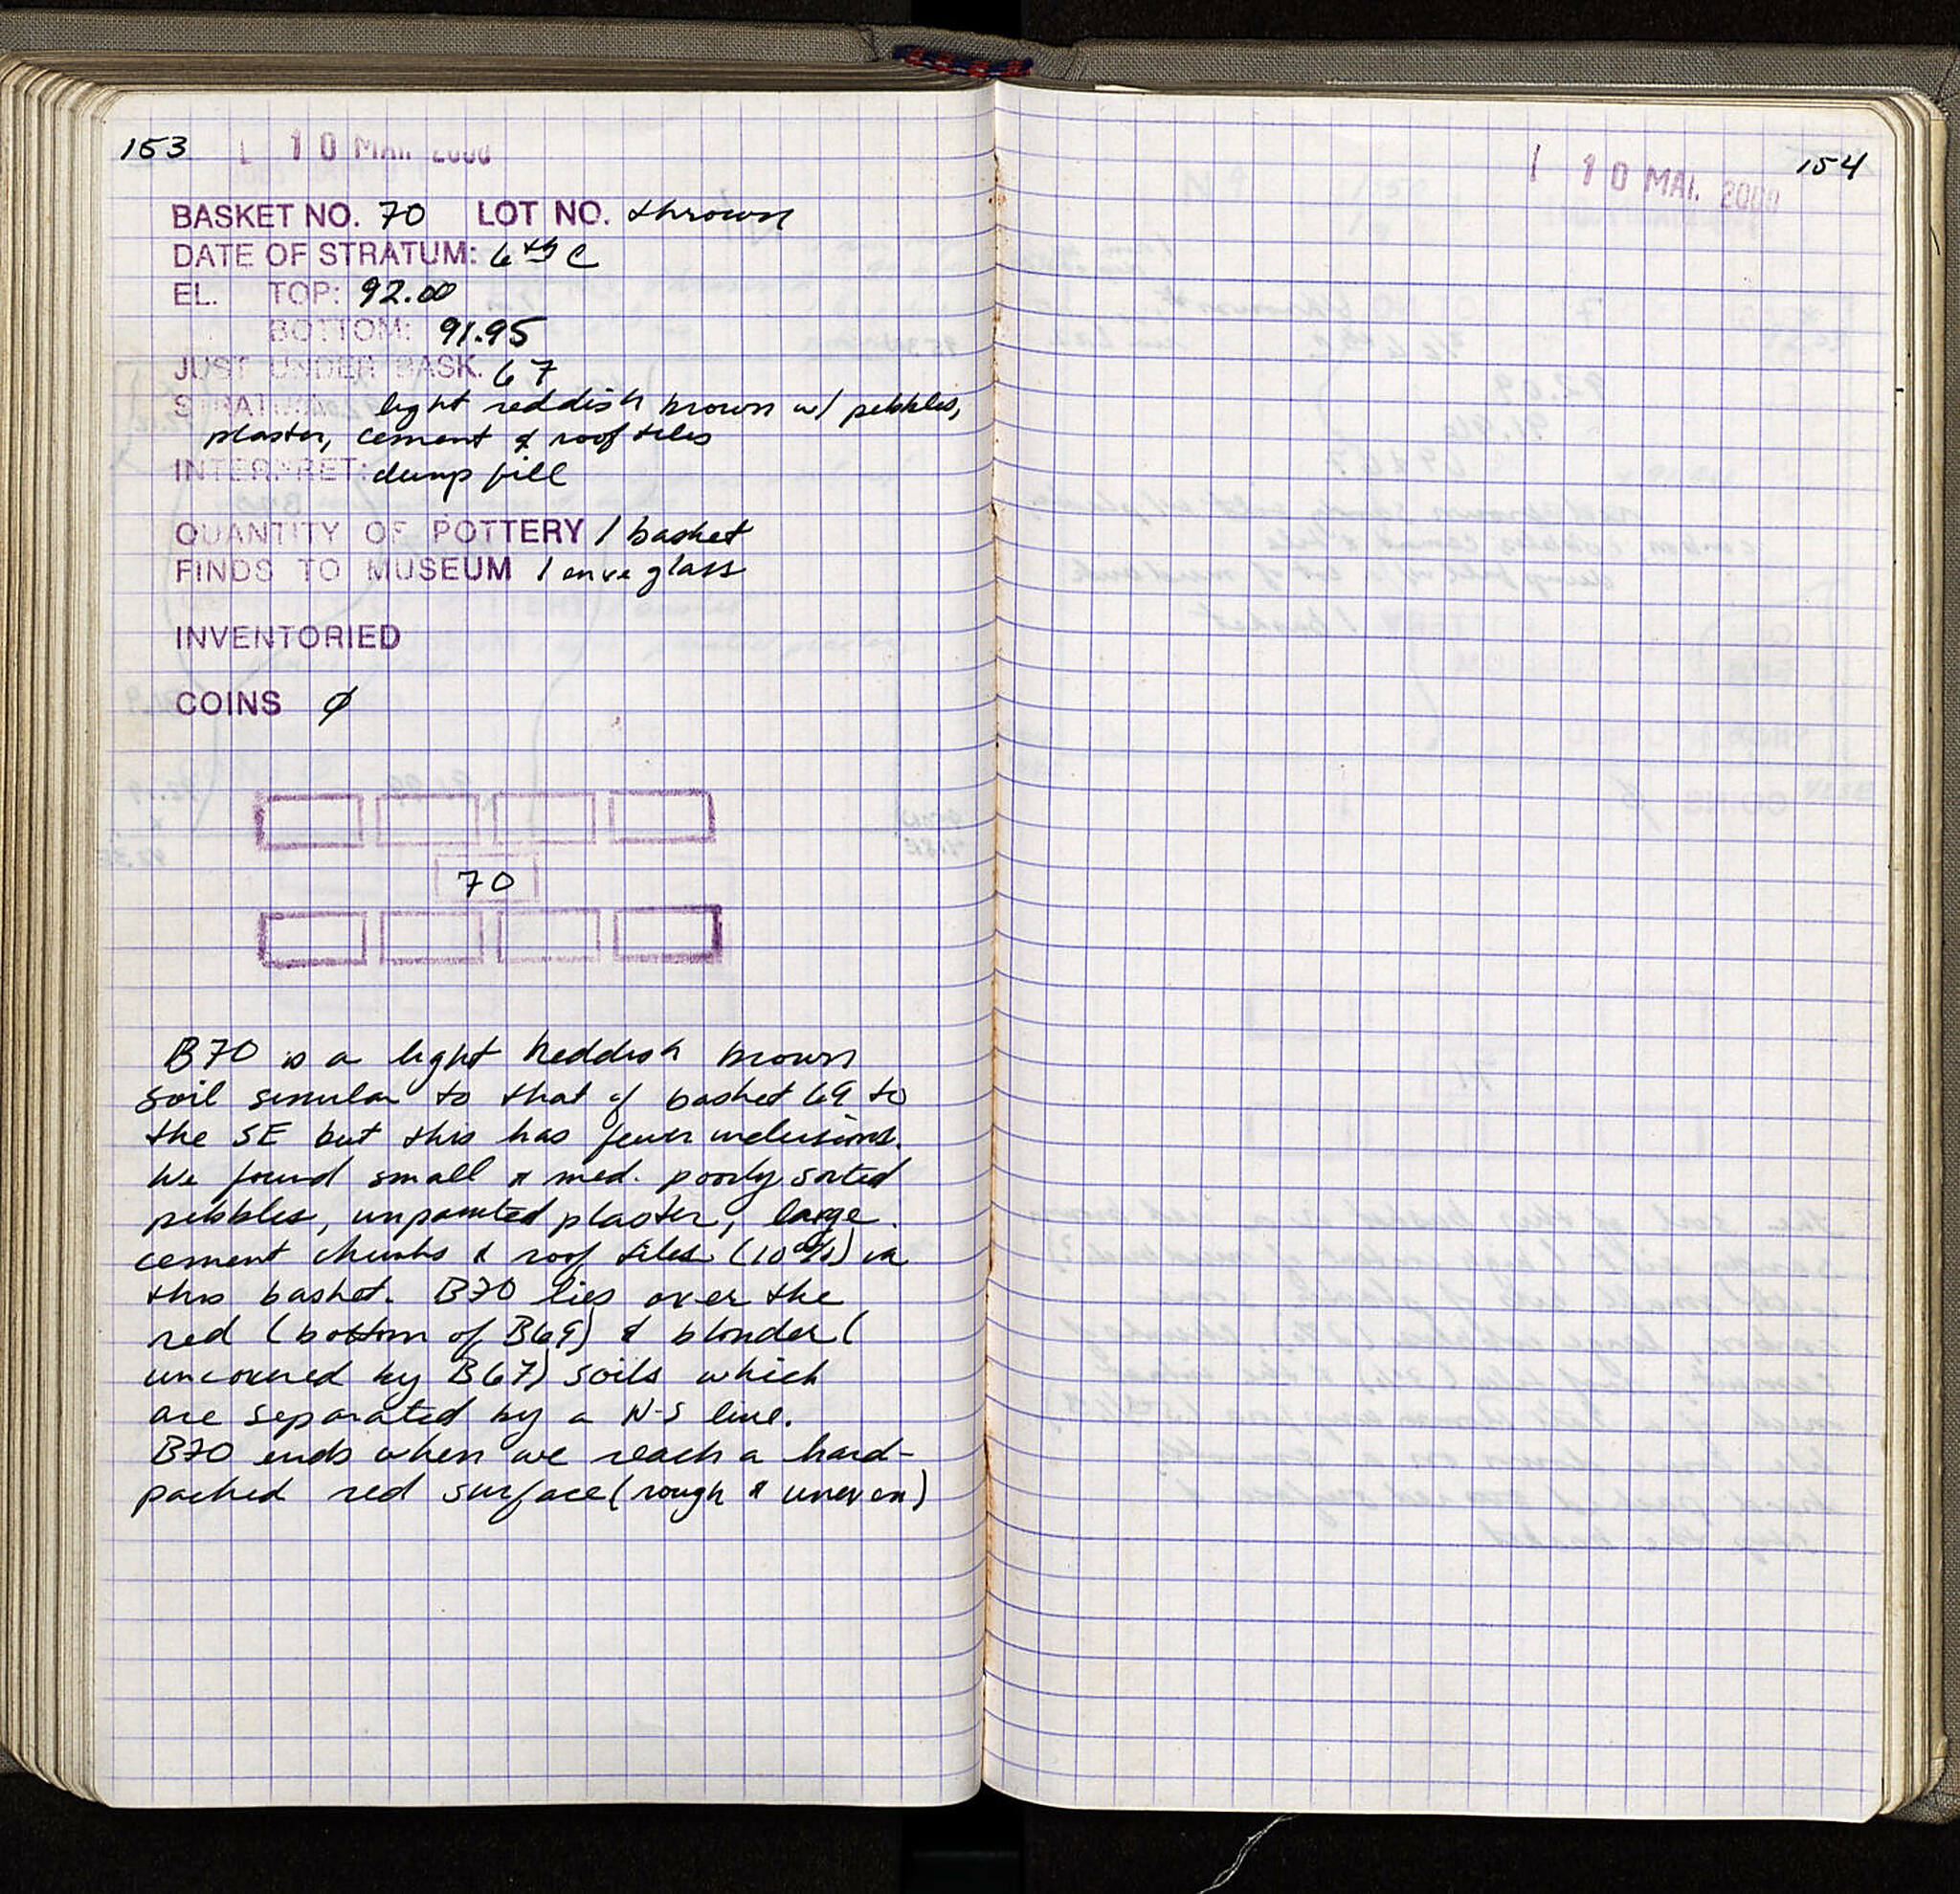 153 10 MAI. 2000
BASKET NO. 70 LOT NO. thrown
DATE OF STRATUM: 6th C
EL. TOP: 92.00
BOTTOM: 91.95
JUST UNDER BASK. 67
STRATUM light reddish brown w/ pebbles,
plaster, cement & roof tiles
INTERPRET: dump fill
QUANTITY OF POTTERY 1 basket
FINDS TO MUSEUM 1 enve glass
INVENTORIED
COINS Ø
70
B70 is a light reddish brown
soil similar to that of basket 69 to
the SE but this has fewer inclusions.
We found small & med. poorly sorted
pebbles, unpainted plaster, large
cement chunks & roof tiles (10%) in
this basket. B70 lies over the
red (bottom of B69) & blonder (
uncovered by B67) soils which
are separated by a N-S line.
B70 ends when we reach a hard-
packed red surface (rough & uneven)
10 MAI. 2000 154